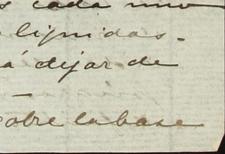 s cada uno
liquidas.
á dejar de
sobre la base